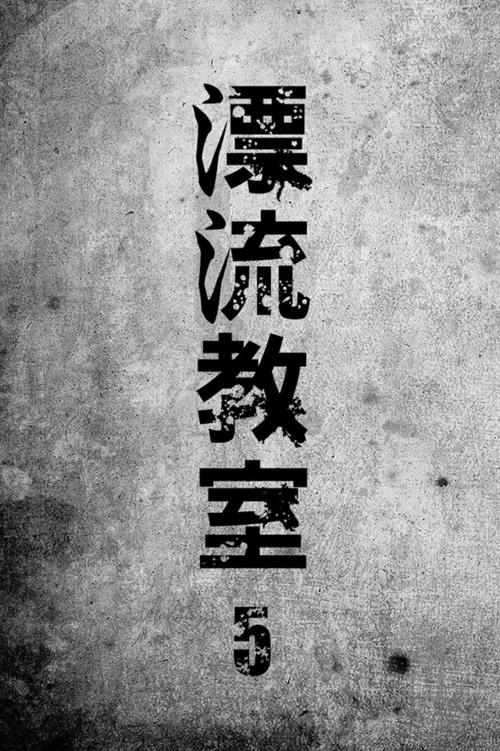 漂流教室
5